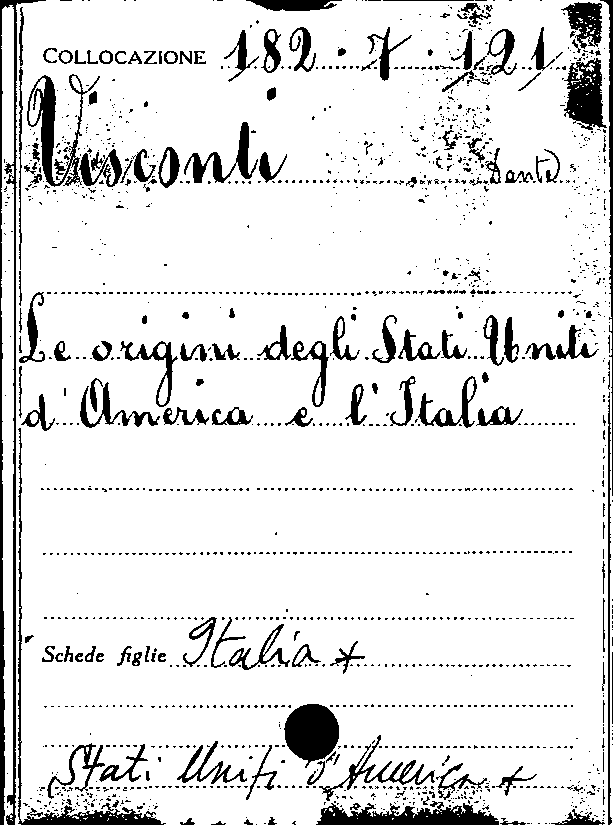 COLLOCAZIONE 182.7.121
Visconti Dante
Le origini degli Stati Uniti
d'America e l'Italia
Schede figlie Italia +
Stati Uniti d'America +